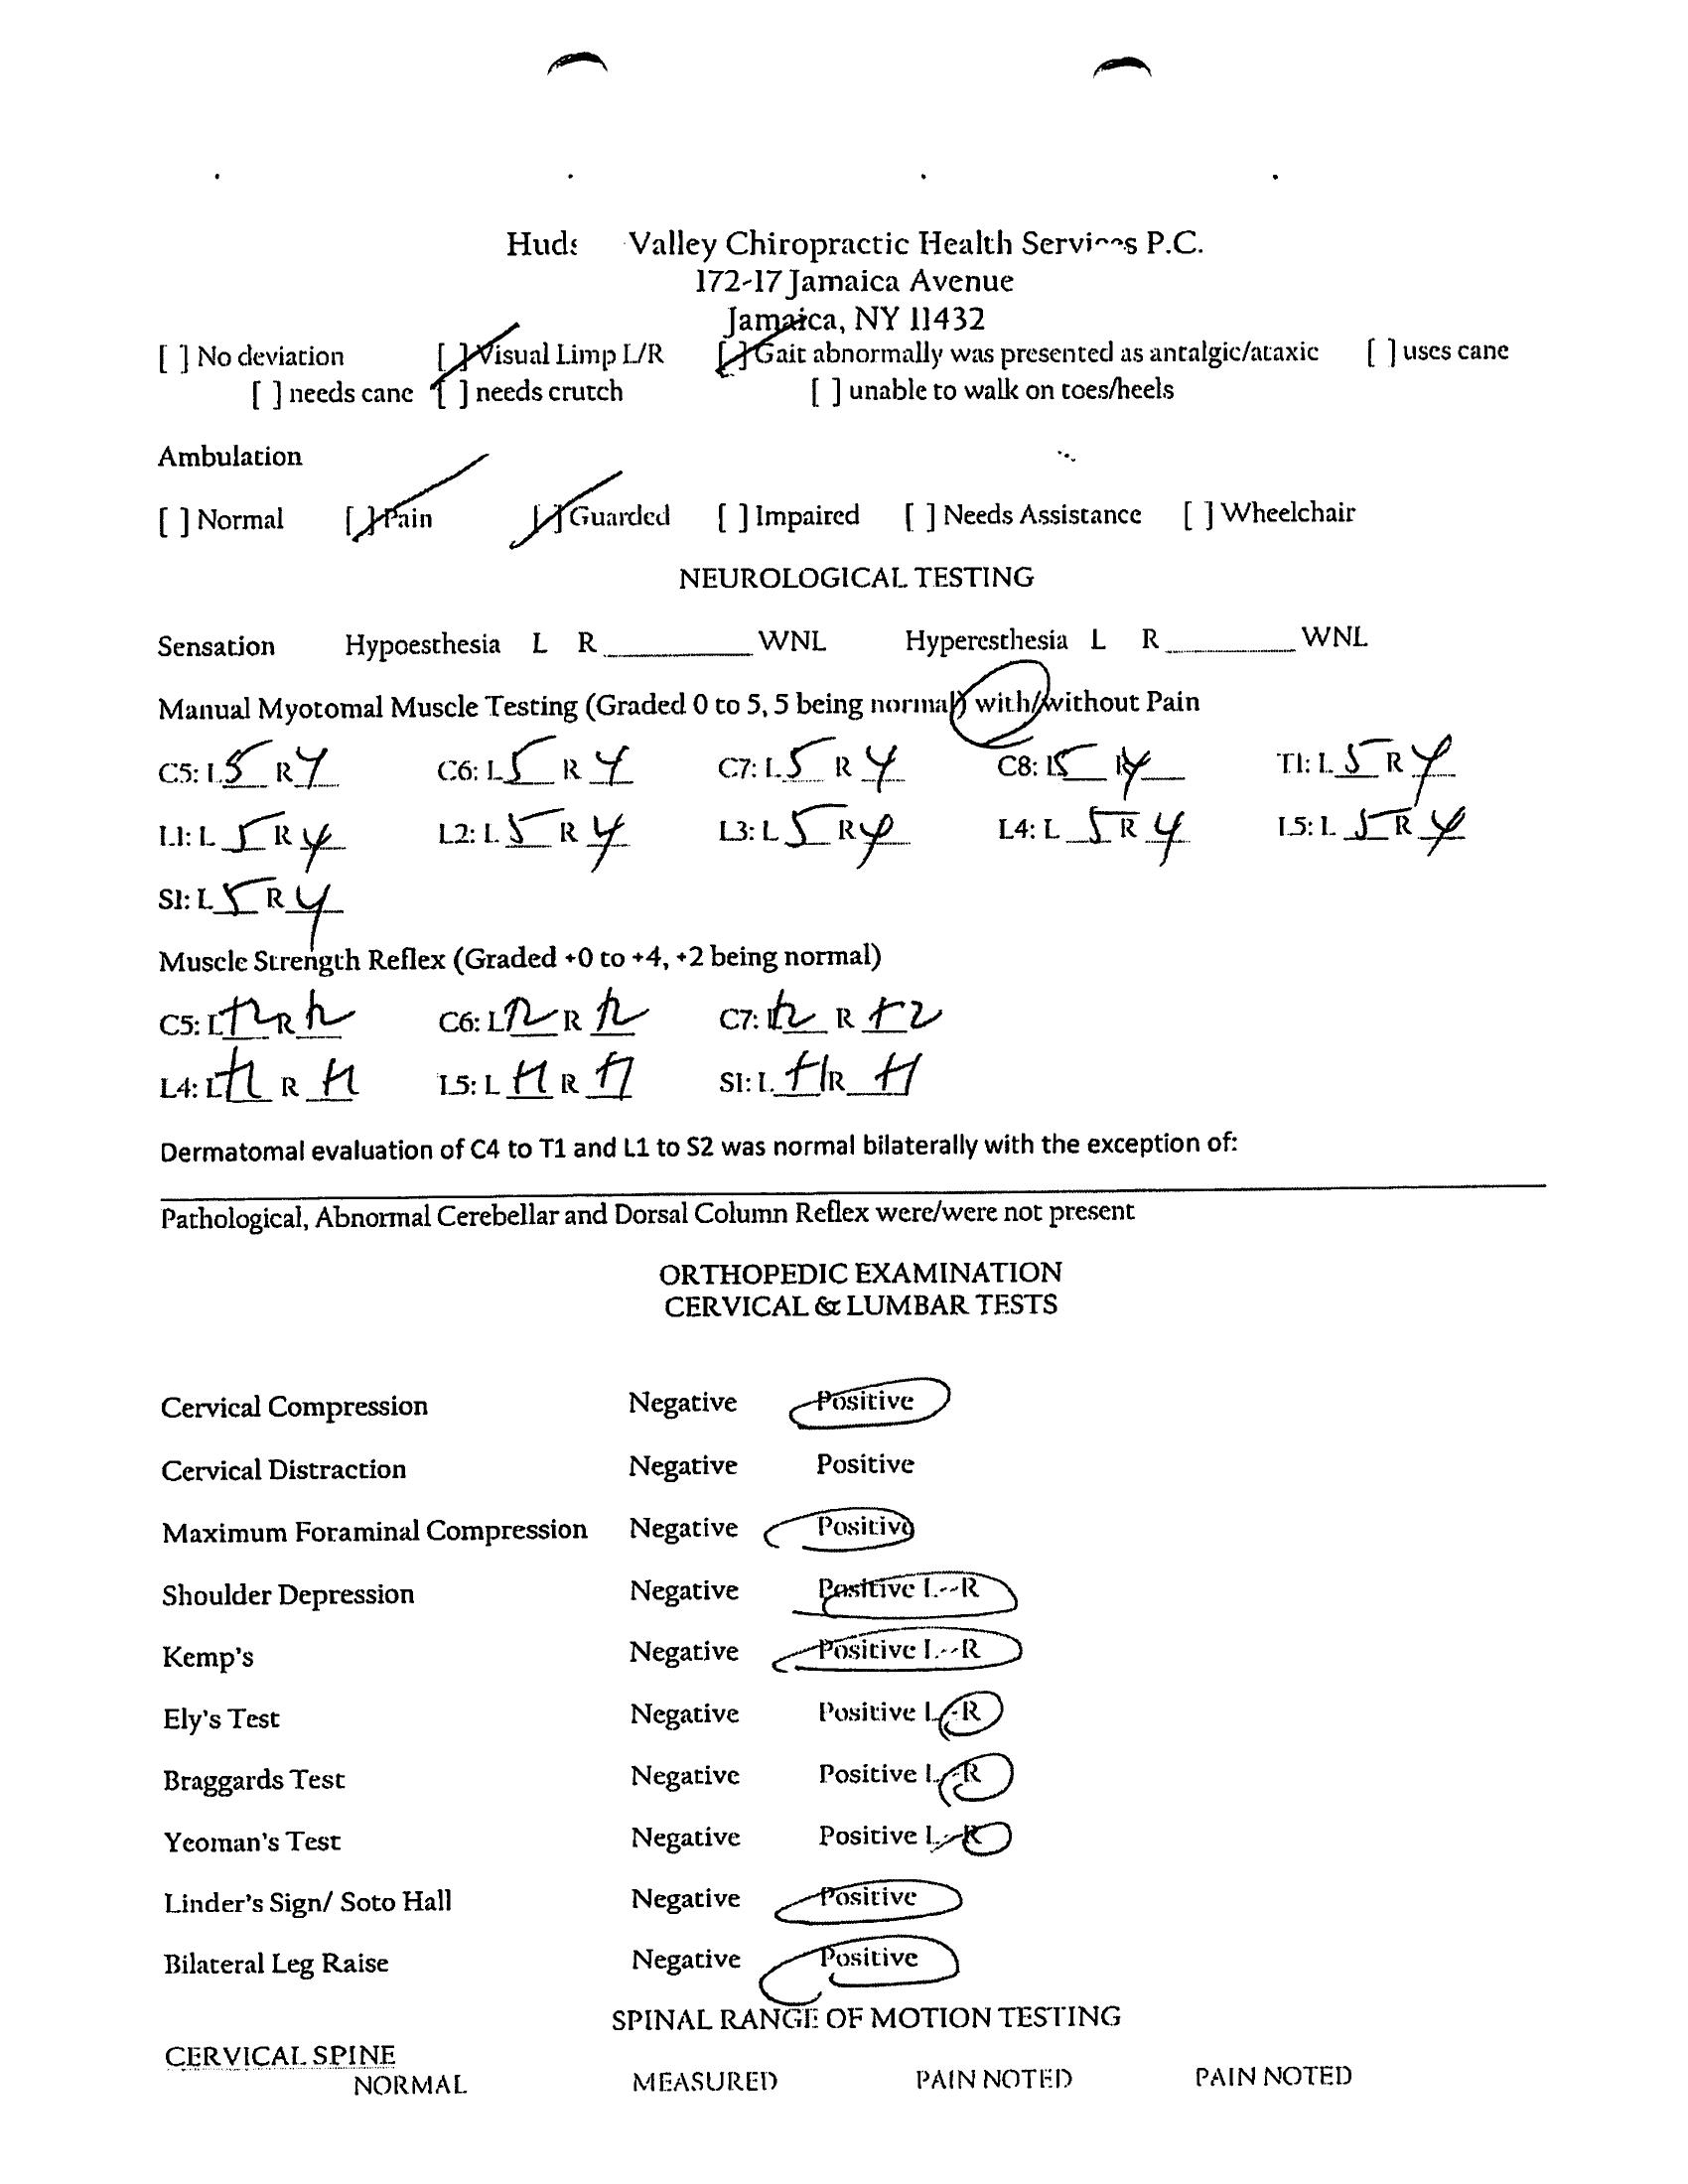 Huds Valley Chiropractic Health Services P.C.
172-17 Jamaica Avenue
Jamaica, NY 11432
[ ] No deviation [ ] Visual Limp L/R [ ] Gait abnormally was presented as antalgic/ataxic [ ] uses cane
[ ] needs cane [ ] needs crutch [ ] unable to walk on toes/heels
Ambulation
[ ] Normal [ ] Pain [ ] Guarded [ ] Impaired [ ] Needs Assistance [ ] Wheelchair
NEUROLOGICAL TESTING
Sensation Hypoesthesia L R WNL Hyperesthesia L R WNL
Manual Myotomal Muscle Testing (Graded 0 to 5, 5 being normal) with/without Pain
C5: L 5 R 4 C6: L 5 R 4 C7: L 5 R 4 C8: L 5 R 4 T1: L 5 R 4
L1: L 5 R 4 L2: L 5 R 4 L3: L 5 R 4 L4: L 5 R 4 L5: L 5 R 4
S1: L 5 R 4
Muscle Strength Reflex (Graded +0 to +4, +2 being normal)
C5: L +2 R +2 C6: L +2 R +2 C7: L +2 R +2
L4: L R L5: L R S1: L +1 R +1
Dermatomal evaluation of C4 to T1 and L1 to S2 was normal bilaterally with the exception of:
Pathological, Abnormal Cerebellar and Dorsal Column Reflex were/were not present
ORTHOPEDIC EXAMINATION
CERVICAL & LUMBAR TESTS
Cervical Compression Negative Positive
Cervical Distraction Negative Positive
Maximum Foraminal Compression Negative Positive
Shoulder Depression Negative Positive L--R
Kemp's Negative Positive L--R
Ely's Test Negative Positive L--R
Braggards Test Negative Positive L--R
Yeoman's Test Negative Positive L--R
Linder's Sign/ Soto Hall Negative Positive
Bilateral Leg Raise Negative Positive
SPINAL RANGE OF MOTION TESTING
CERVICAL SPINE
NORMAL MEASURED PAIN NOTED PAIN NOTED